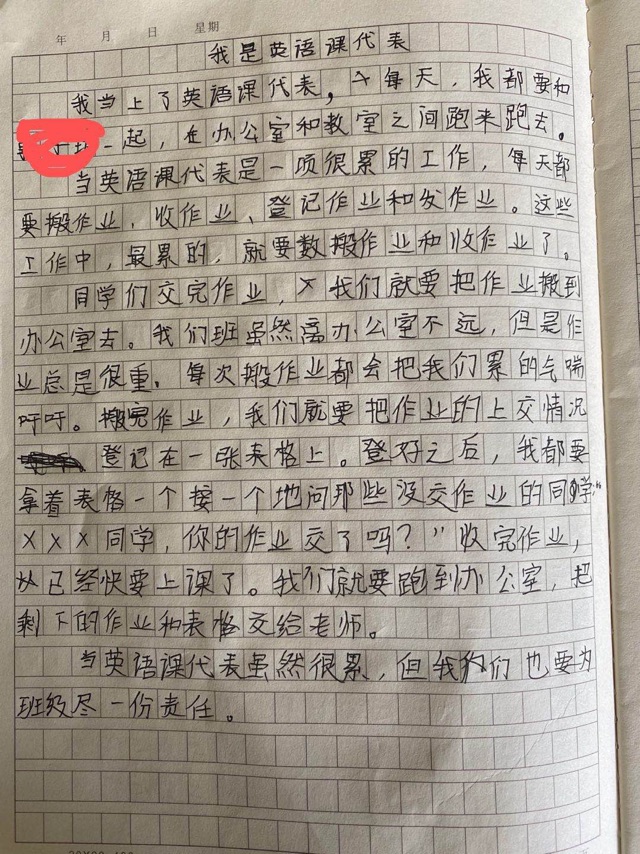 年 月 日 星期
我是英语课代表
我当上了英语课代表，每天，我都要和
一起，在办公室和教室之间跑来跑去。
当英语课代表是一项很累的工作，每天都
要搬作业，收作业、登记作业和发作业。这些
工作中，最累的，就要数搬作业和收作业了。
同学们交完作业，我们就要把作业搬到
办公室去。我们班虽然离办公室不远，但是作
业总是很重，每次搬作业都会把我们累的气喘
吁吁。搬完作业，我们就要把作业的上交情况
登记在一张表格上。登好之后，我都要
拿着表格一个接一个地问那些没交作业的同学：“
×××同学，你的作业交了吗？”收完作业，
已经快要上课了。我们就要跑到办公室，把
剩下的作业和表格交给老师。
当英语课代表虽然很累，但我们也要为
班级尽一份责任。